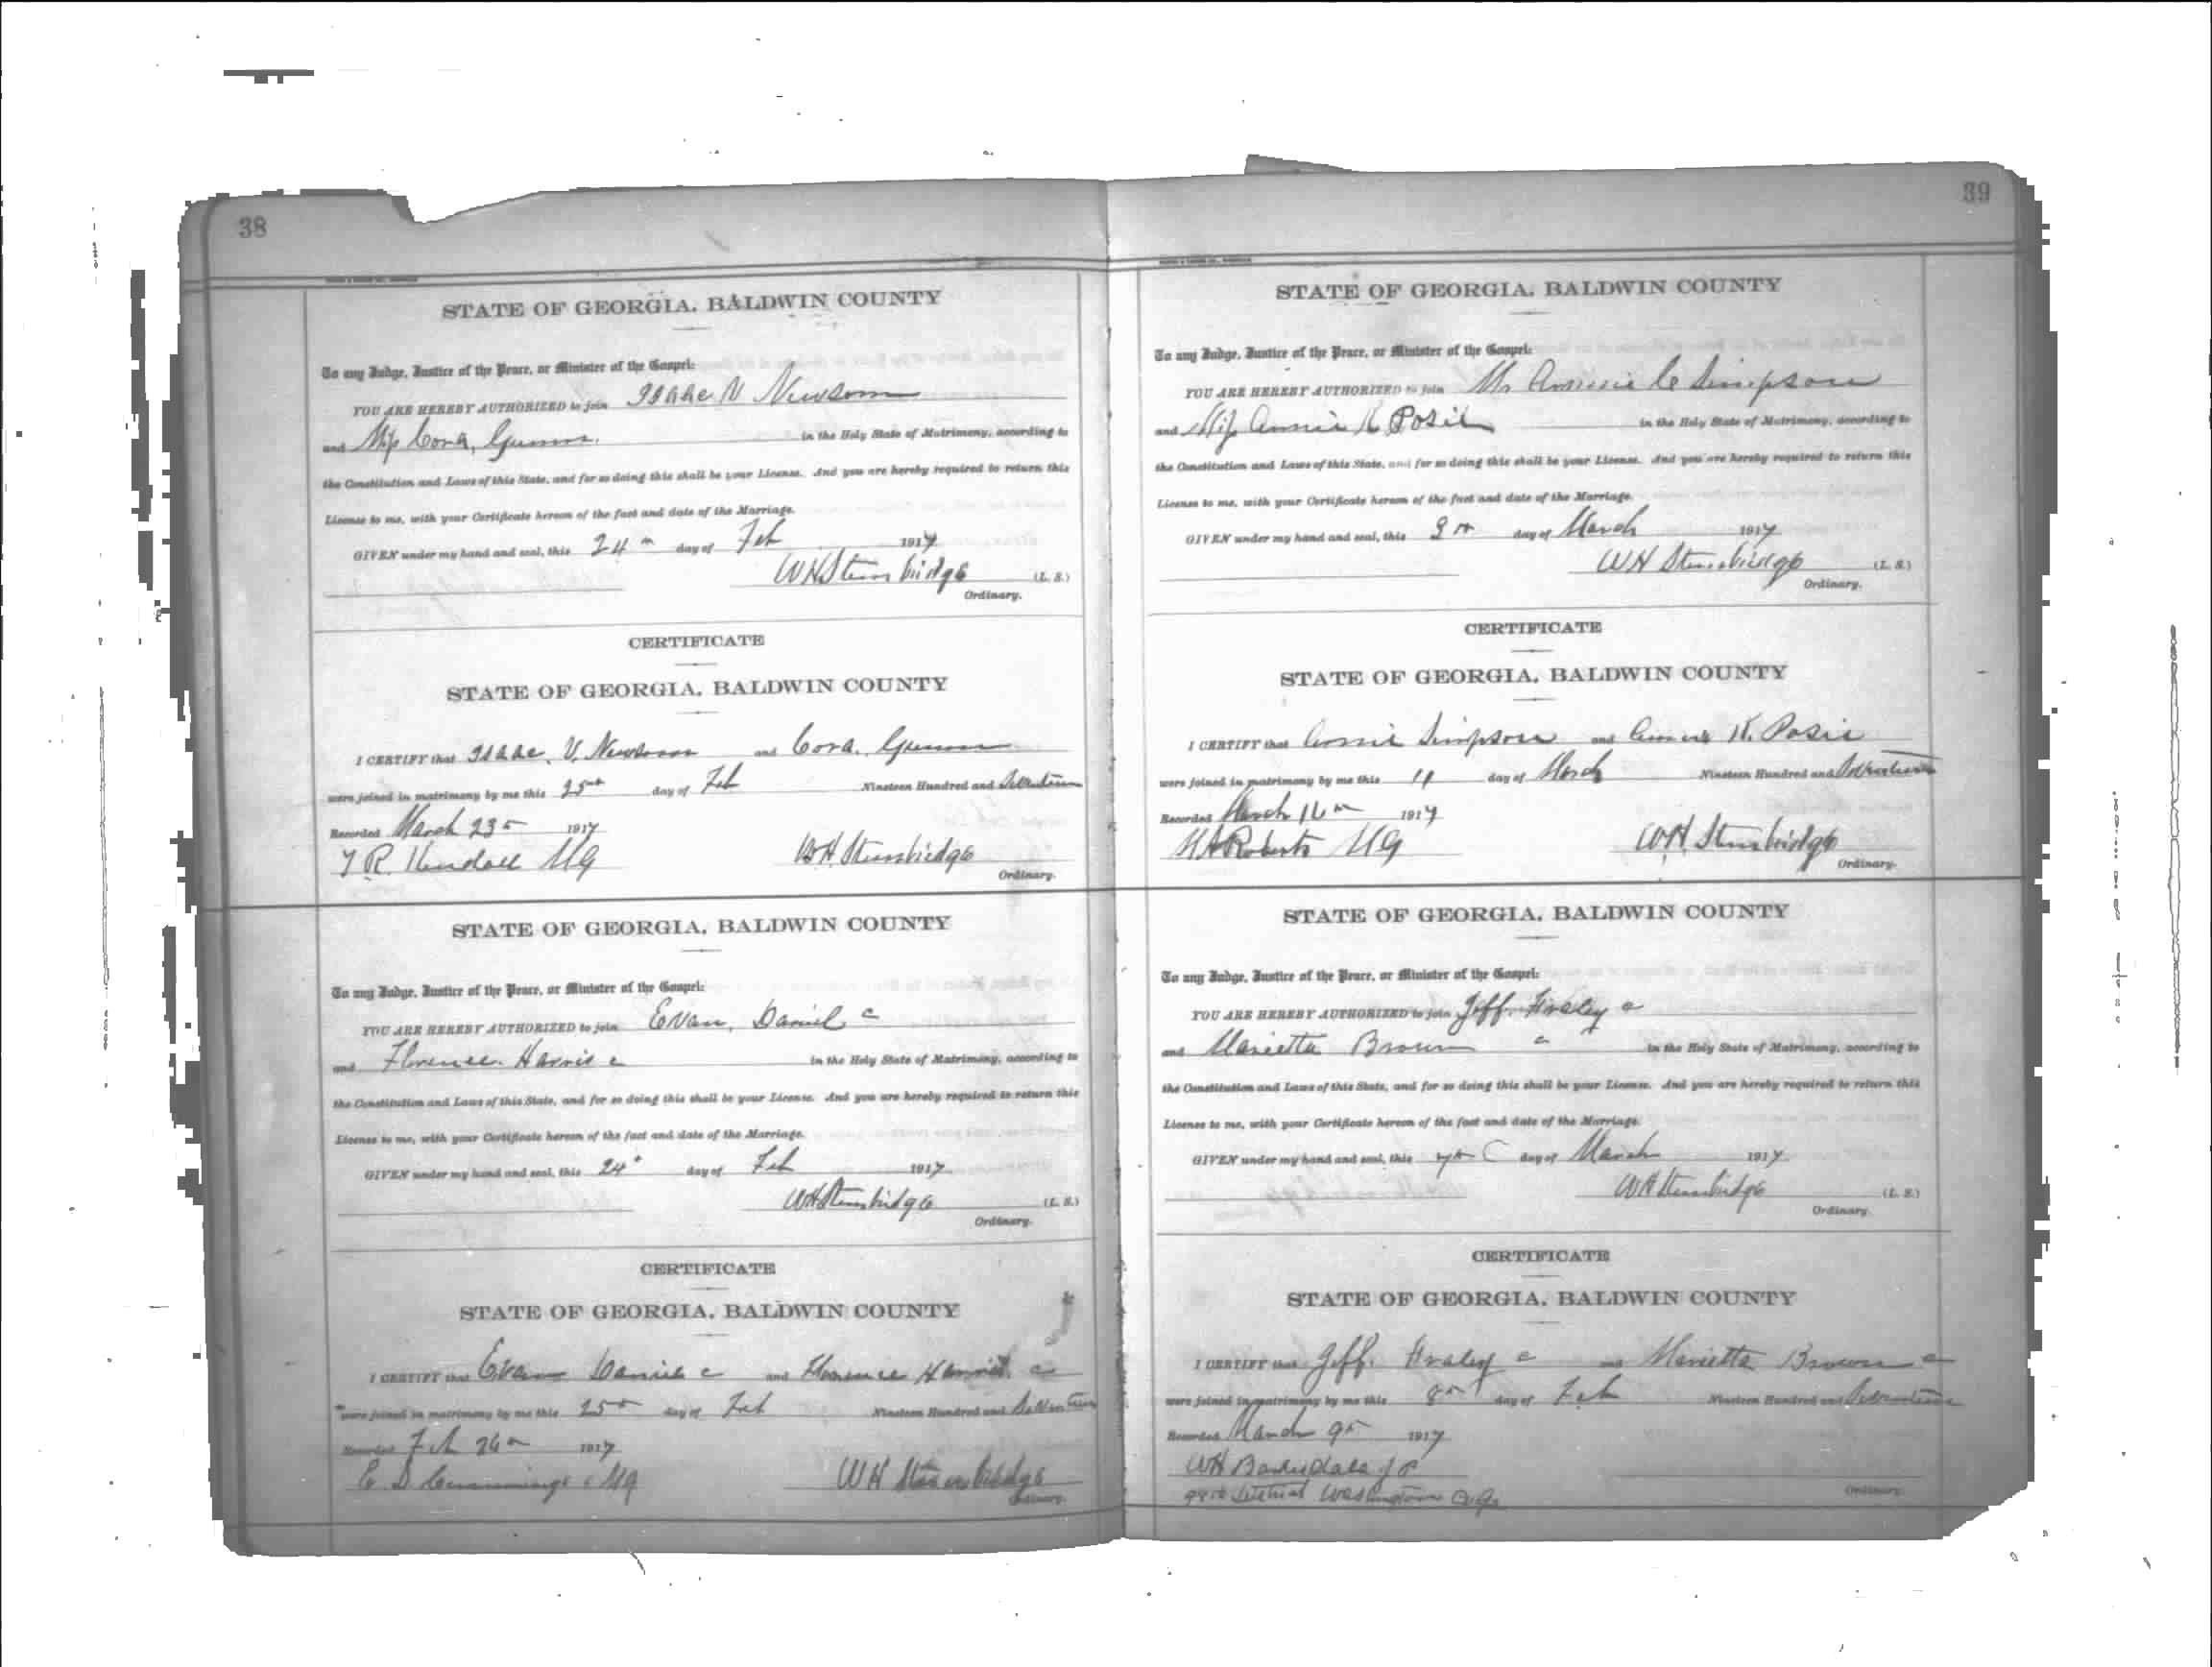 38
STATE OF GEORGIA, BALDWIN COUNTY
To any Judge, Justice of the Peace, or Minister of the Gospel:
YOU ARE HEREBY AUTHORIZED to join Isaac V. Newsom
and Miss Cora, Gumm in the Holy State of Matrimony, according to
the Constitution and Laws of this State, and for so doing this shall be your License. And you are hereby required to return this
License to me, with your Certificate hereon of the fact and date of the Marriage.
GIVEN under my hand and seal, this 24 day of Feb 1917
WH Stembridge (L. S.)
Ordinary.
CERTIFICATE
STATE OF GEORGIA, BALDWIN COUNTY
I CERTIFY that Isaac, V. Newsom and Cora.
were joined in matrimony by me this 25th day of Feb Nineteen Hundred and Seventeen
Recorded March 23 1917
R. Kendall MG WH Stembridge
Ordinary.
STATE OF GEORGIA, BALDWIN COUNTY
To any Judge, Justice of the Peace, or Minister of the Gospel:
YOU ARE HEREBY AUTHORIZED to join Evan, Daniel c
and Florence. Harris c in the Holy State of Matrimony, according to
the Constitution and Laws of this State, and for so doing this shall be your License. And you are hereby required to return this
License to me, with your Certificate hereon of the fact and date of the Marriage.
GIVEN under my hand and seal, this 24 day of Feb 1917
WH Stembridge (L. S.)
Ordinary.
CERTIFICATE
STATE OF GEORGIA, BALDWIN COUNTY
I CERTIFY that Evan Daniel c and Florence Harris c
were joined in matrimony by me this 25 day of Feb Nineteen Hundred and Seventeen
Recorded Feb 26 1917
E D Cummings MG WH Stembridge
Ordinary.
39
STATE OF GEORGIA, BALDWIN COUNTY
To any Judge, Justice of the Peace, or Minister of the Gospel:
YOU ARE HEREBY AUTHORIZED to join Mr Simpson
and Miss Annie K in the Holy State of Matrimony, according to
the Constitution and Laws of this State, and for so doing this shall be your License. And you are hereby required to return this
License to me, with your Certificate hereon of the fact and date of the Marriage.
GIVEN under my hand and seal, this day of March 1917
WH Stembridge (L. S.)
Ordinary.
CERTIFICATE
STATE OF GEORGIA, BALDWIN COUNTY
I CERTIFY that Simpson and K. Posie
were joined in matrimony by me this 11 day of March Nineteen Hundred and Seventeen
Recorded March 16 1917
Roberts MG WH Stembridge
Ordinary.
STATE OF GEORGIA, BALDWIN COUNTY
To any Judge, Justice of the Peace, or Minister of the Gospel:
YOU ARE HEREBY AUTHORIZED to join Jeff. Fraley c
and Marietta Brown c in the Holy State of Matrimony, according to
the Constitution and Laws of this State, and for so doing this shall be your License. And you are hereby required to return this
License to me, with your Certificate hereon of the fact and date of the Marriage.
GIVEN under my hand and seal, this 7th day of March 1917
WH Stembridge (L. S.)
Ordinary.
CERTIFICATE
STATE OF GEORGIA, BALDWIN COUNTY
I CERTIFY that Jeff. Fraley c and Marietta Brown c
were joined in matrimony by me this 8 day of Feb Nineteen Hundred and Seventeen
Recorded March 9 1917
WH Barksdale JP
98th District Washington Co Ga
Ordinary.